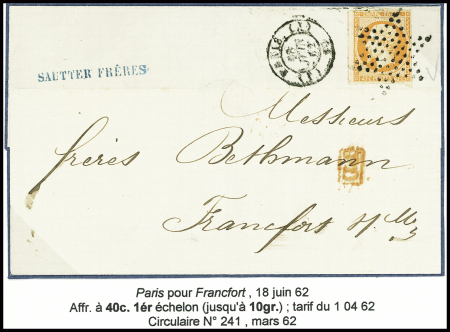 SAUTTER FRÈRES
Messieurs
frères Bethmann
Francfort s/M
Paris pour Francfort , 18 juin 62
Affr. à 40c. 1ér échelon (jusqu'à 10gr.) ; tarif du 1 04 62
Circulaire N° 241 , mars 62